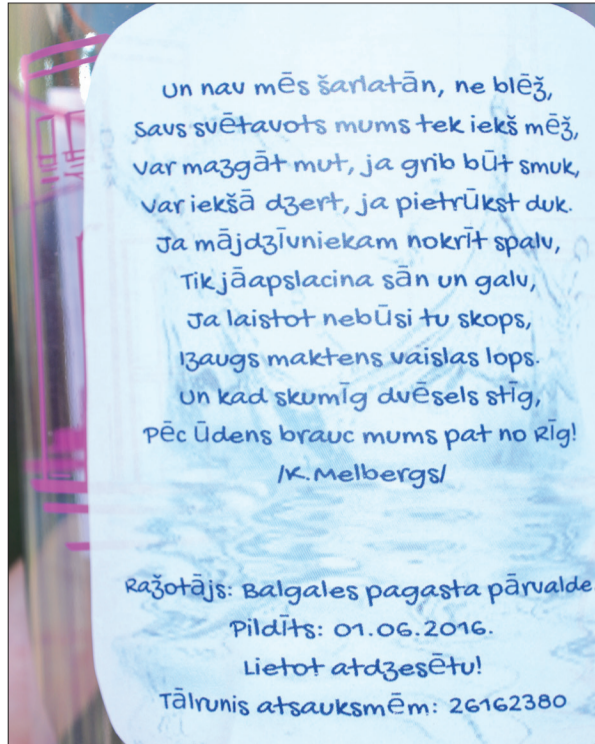 Un nav mēs šarlatān, ne blēž,
Savs svētavots mums tek iekš mēž,
Var mazgāt mut, ja grib būt smuk,
Var iekšā dzert, ja pietrūkst duk.
Ja mājdzīvniekam nokrīt spalv,
Tik jāapslacina sān un galv,
Ja laistot nebūsi tu skops,
Izaugs maktens vaislas lops.
Un kad skumīg dvēsels stīg,
Pēc ūdens brauc mums pat no Rīg!
/K.Melbergs/
Ražotājs: Balgales pagasta pārvalde
Pildīts: 01.06.2016.
Lietot atdzesētu!
Tālrunis atsauksmēm: 26162380